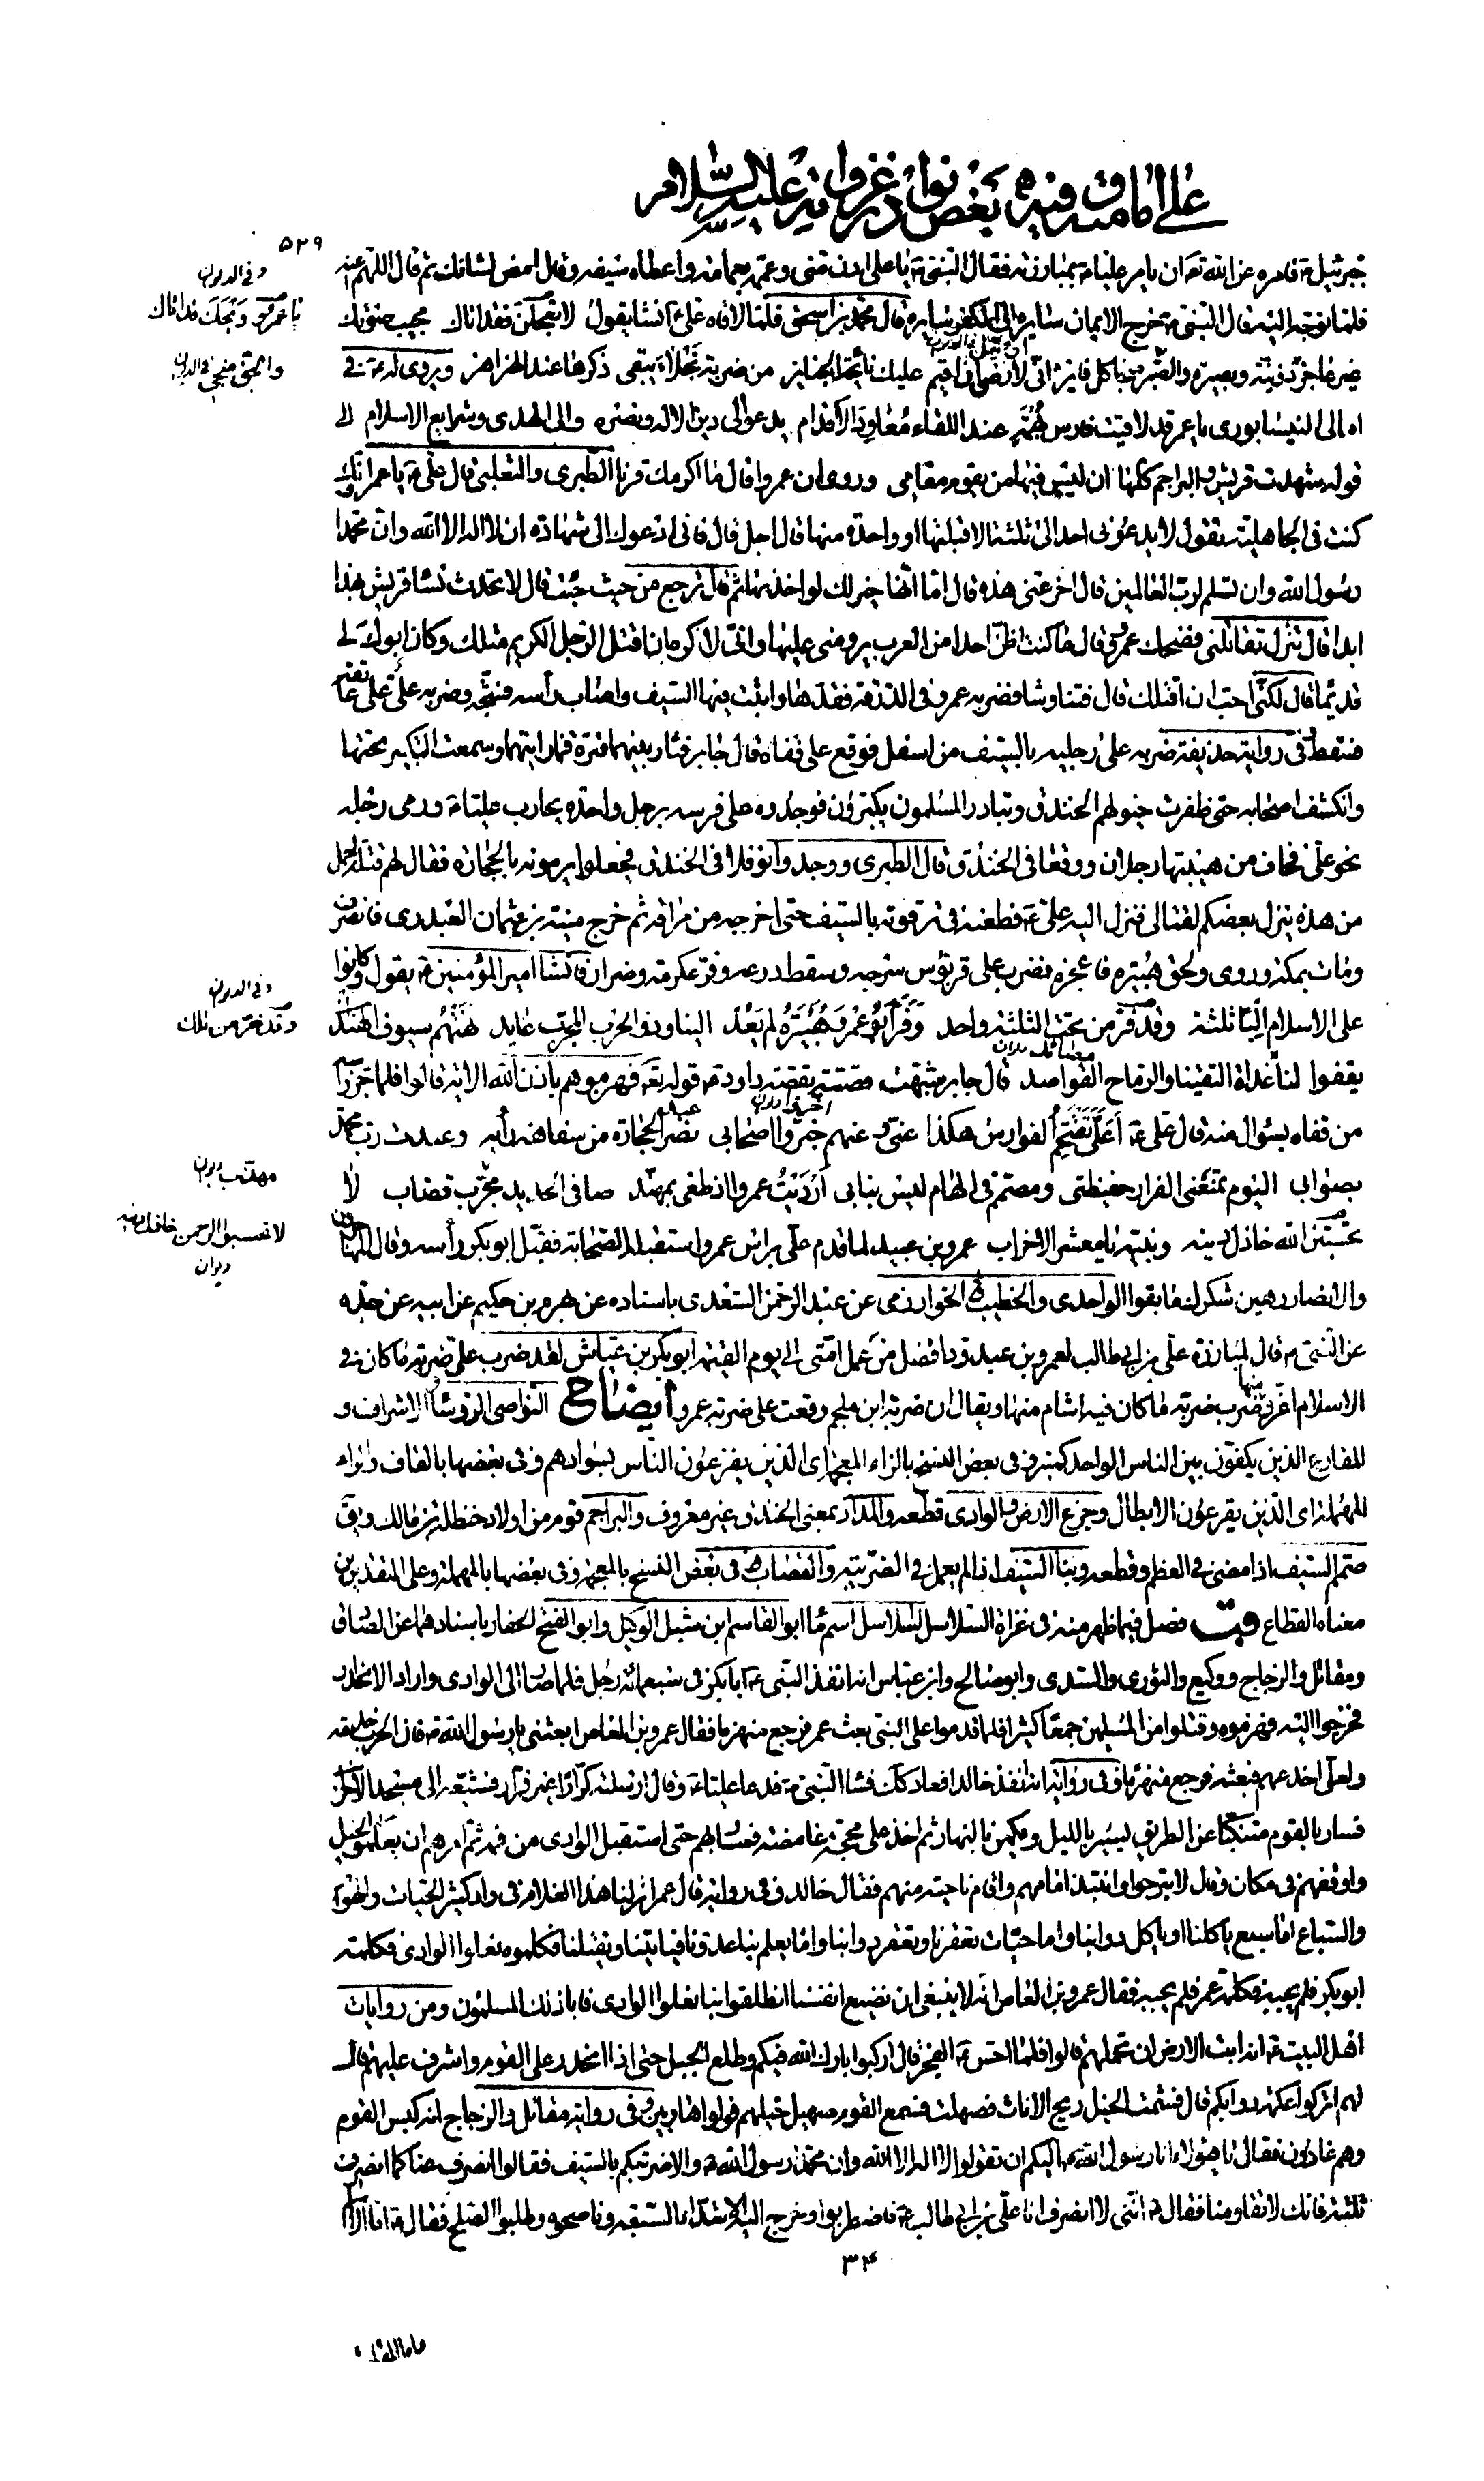 على امامته وفيه بعض نوادر غزواته عليه السلام
٥٢٩
جبرئيل ع فامره عن الله تعه ان يامر عليا ع بمبارزته فقال النبي ص يا على ادن منى وعممه بعمامته واعطاه سيفه وقال امض لشانك ثم قال اللهم اعنه
فلما توجه اليه قال النبي ص خرج الايمان سايره الى الكفر سايره قال محمد بن اسحق فلما لاقاه على ع انشا يقول لا تعجلن فقد اتاك مجيب صوتك
غير عاجز ذو نية وبصيرة والصبر منجى كل فايز انى لارجو ان اقيم عليك نائحة الجنايز من ضربة نجلاء يبقى ذكرها عند الهزاهز ويروى له ع فى
امالى النيسابورى يا عمرو قد لاقيت فارس بهمة عند اللقاء معاود الاقدام يدعو الى دين الاله ونصره والى الهدى وشرايع الاسلام الى
قوله شهدت قريش والبراجم كلها ان ليس فيها من يقوم مقامى وروى ان عمروا قال ما اكرمك قرنا الطبرى والثعلبى قال على ع يا عمرو انك
كنت فى الجاهلية تقول لا يدعونى احد الى ثلثة الا قبلتها او واحدة منها قال اجل قال فانى ادعوك الى شهادة ان لا اله الا الله وان محمدا
رسول الله وان تسلم لرب العالمين قال اخر عنى هذه قال اما انها خير لك لو اخذتها ثم قال ترجع من حيث جئت قال لا تحدث نسا قريش بهذا
ابدا قال تنزل تقاتلنى فضحك عمرو وقال ما كنت اظن احدا من العرب يرومنى عليها وانى لاكره ان اقتل الرجل الكريم مثلك وكان ابوك لى
نديما قال لكنى احب ان اقتلك قال فتناوشا فضربه عمرو فى الدرقة فقدها واثبت فيها السيف واصاب رأسه فشجه وضربه على ع على عاتقه
فسقط وفى رواية حذيفة ضربه على رجليه بالسيف من اسفل فوقع على قفاه قال جابر فثار بينهما قترة فما رايتهما وسمعت التكبير تحتها
وانكشف اصحابه حتى طفرت خيولهم الخندق وتبادر المسلمون يكبرون فوجدوه على فرسه برجل واحدة يحارب عليا ع ورمى رجله
نحو على فخاف من هيبتها رجلان ووقعا فى الخندق وقال الطبرى ووجدوا نوفلا فى الخندق فجعلوا يرمونه بالحجارة فقال لهم قتلة اجمل
من هذه ينزل بعضكم لقتالى فنزل اليه على ع فطعنه فى ترقوته بالسيف حتى اخرجه من مراقه ثم خرج منبه بن عثمان العبدرى فانصرف
ومات بمكة وروى ولحق هبيرة فاعجزه فضرب على قربوس سرجه وسقط درعه وفر عكرمة وضرار فانشا امير المؤمنين ع يقول وكانوا
على الاسلام البا ثلثة وقد فر من تحت الثلثة واحد وفر ابو عمرو هبيرة لم يعد الينا وذو الحرب المجرب عايد نهتهم سيوف الهند ان
يقفوا لنا غداة التقينا والرماح القواصد قال جابر شبهت قصته بقصة داود ع قوله تعه فهزموهم باذن الله الاية قالوا فلما جز رأسه
من قفاه بسؤال منه قال على ع أعلى تقتحم الفوارس هكذا عنى وعنهم خبروا اصحابى نصر الحجارة من سفاهة رأيه وعبدت رب محمد
بصوابى اليوم تمنعنى الفرار حفيظتى ومصمم فى الهام ليس بنابى أرديت عمروا اذ طغى بمهند صافى الحديد مجرب قضاب لا
تحسبن الله خاذل دينه ونبيه يا معشر الاحزاب عمرو بن عبيد لما قدم على براس عمرو استقبله الصحابة فقبل ابو بكر رأسه وقال المهاجرون
والانصار رهين شكرك ما بقوا الواحدى والخطيب الخوارزمى عن عبد الرحمن السعدى باسناده عن بهرم بن حكيم عن ابيه عن جده
عن النبي ص قال لمبارزة على بن ابى طالب لعمرو بن عبد ود افضل من عمل امتى الى يوم القيمة ابو بكر بن عياش لقد ضرب على ضربة ما كان فى
الاسلام اعز منها وضرب ضربة ما كان فيه اشام منها ويقال ان ضربة ابن ملجم وقعت على ضربة عمرو ايضاح النواصى الرؤسا والاشراف و
المقاريع الذين يكفون بين الناس الواحد كمنبر وفى بعض النسخ بالزاء المعجمة اى الذين يفزعون الناس بسوادهم وفى بعضها بالقاف والراء
المهملة اى الذين يقرعون الابطال وجزع الارض والوادى قطعه والمداد بمعنى الخندق غير معروف والبراجم قوم من اولاد حنظلة بن مالك ويق
صمم السيف اذا مضى فى العظم وقطعه ونبا السيف اذا لم يعمل فى الضريبة والقضاب فى بعض النسخ بالمعجمة وفى بعضها بالمهملة وعلى التقديرين
معناه القطاع قب فصل فيما ظهر منه فى غزاة السلاسل السلاسل اسم ماء ابو القاسم ابن شبل الوكيل وابو الفتح الحفار باسنادهما عن الصادق
ومقاتل والزجاج ووكيع والثورى والسدى وابو صالح وابن عباس انه انفذ النبي ص ابا بكر فى سبعمائة رجل فلما صار الى الوادى واراد الانحدار
فخرجوا اليه فهزموه وقتلوا من المسلمين جمعا كثيرا فلما قدموا على النبي بعث عمر فرجع منهزما فقال عمرو بن العاص ابعثنى يا رسول الله ص فان الحرب خدعة
ولعلى اخدعهم فبعثه فرجع منهزما وفى رواية انه انفذ خالدا فعاد كك فساء النبي ص فدعا عليا ع وقال ارسلته كرارا غير فرار فشيعه الى مسجد الاحزاب
فسار بالقوم متنكبا عن الطريق يسير بالليل ويكمن بالنهار ثم اخذ على محجة غامضة فسار بهم حتى استقبل الوادى من فمه ثم امرهم ان يعكموا الخيل
واوقفهم فى مكان وقال لا تبرحوا وانتبذ امامهم واقام ناحية منهم فقال خالد وفى رواية قال عمر انزلنا هذا الغلام فى واد كثير الحيات والهوام
والسباع اما سبع ياكلنا او ياكل دوابنا واما حيات تعقرنا وتعقر دوابنا واما يعلم بنا عدونا فياتينا ويقتلنا فكلموه نعلوا الوادى فكلمه
ابو بكر فلم يجبه فكلمه عمر فلم يجبه فقال عمرو بن العاص انه لا ينبغى ان نضيع انفسنا انطلقوا بنا نعلوا الوادى فابا ذلك المسلمون ومن روايات
اهل البيت ع انه ابت الارض ان تحملهم قالوا فلما احس ع الفجر قال اركبوا بارك الله فيكم وطلع الجبل حتى اذا انحدر على القوم واشرف عليهم قال
لهم اتركوا عكمة دوابكم قال فشمت الخيل ريح الاناث فصهلت فسمع القوم صهيل خيلهم فولوا هاربين وفى رواية مقاتل والزجاج انه كبس القوم
وهم غادون فقال يا هؤلاء انا رسول رسول الله ص اليكم ان تقولوا لا اله الا الله وان محمدا رسول الله ص والا ضربتكم بالسيف فقالوا انصرف عنا كما انصرف
ثلثة فانك لا تقاومنا فقال ع اننى لا انصرف انا على بن ابى طالب ع فاضطربوا وخرج اليه الاشداء السبعة وناصحوه وطلبوا الصلح فقال ع اما الاسلام
٣٤
واما المقاومة
وفى الديوان
يا عمرو ويحك قد اتاك
والحق منجى فى الديوان
وفى الديوان
وقد خر من تلك
مهذب ديوان
لا تحسبوا الرحمن خاذل دينه
ديوان